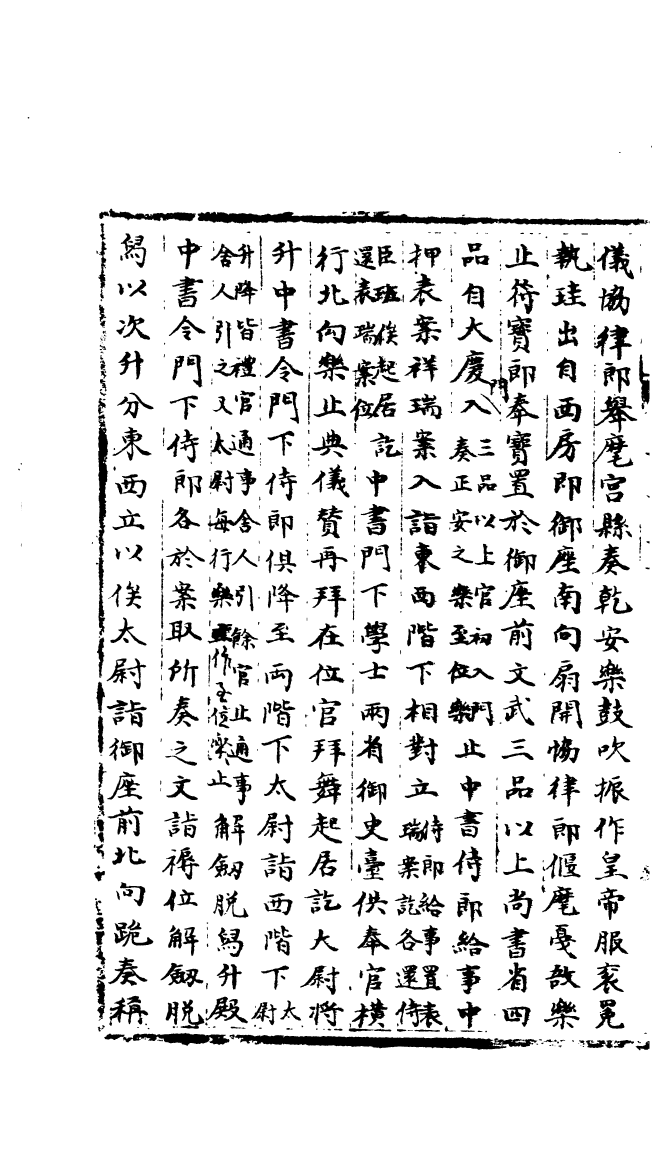 儀協律郎舉麾宮縣奏乾安樂鼓吹振作皇帝服衮冕
執珪出自西房即御座南向扇開協律郎偃麾戞敔樂
止符寶郎奉寶置於御座前文武三品以上尚書省四
品自大慶門入三品以上官初入門奏正安之樂至位樂止中書侍郎給事中
押表案祥瑞案入詣東西階下相對立侍郎給事置表瑞案訖各還侍
臣班俟起居還表瑞案位訖中書門下學士兩省御史臺供奉官橫
行北向樂止典儀贊再拜在位官拜舞起居訖大尉將
升中書令門下侍郎俱降至兩階下太尉詣西階下太尉
升降皆禮官通事舍人引餘官止通事舍人引之又太尉每行樂作至位樂止解劔脱舄升殿
中書令門下侍郎各於案取所奏之文詣褥位解劔脱
舄以次升分東西立以俟太尉詣御座前北向跪奏稱